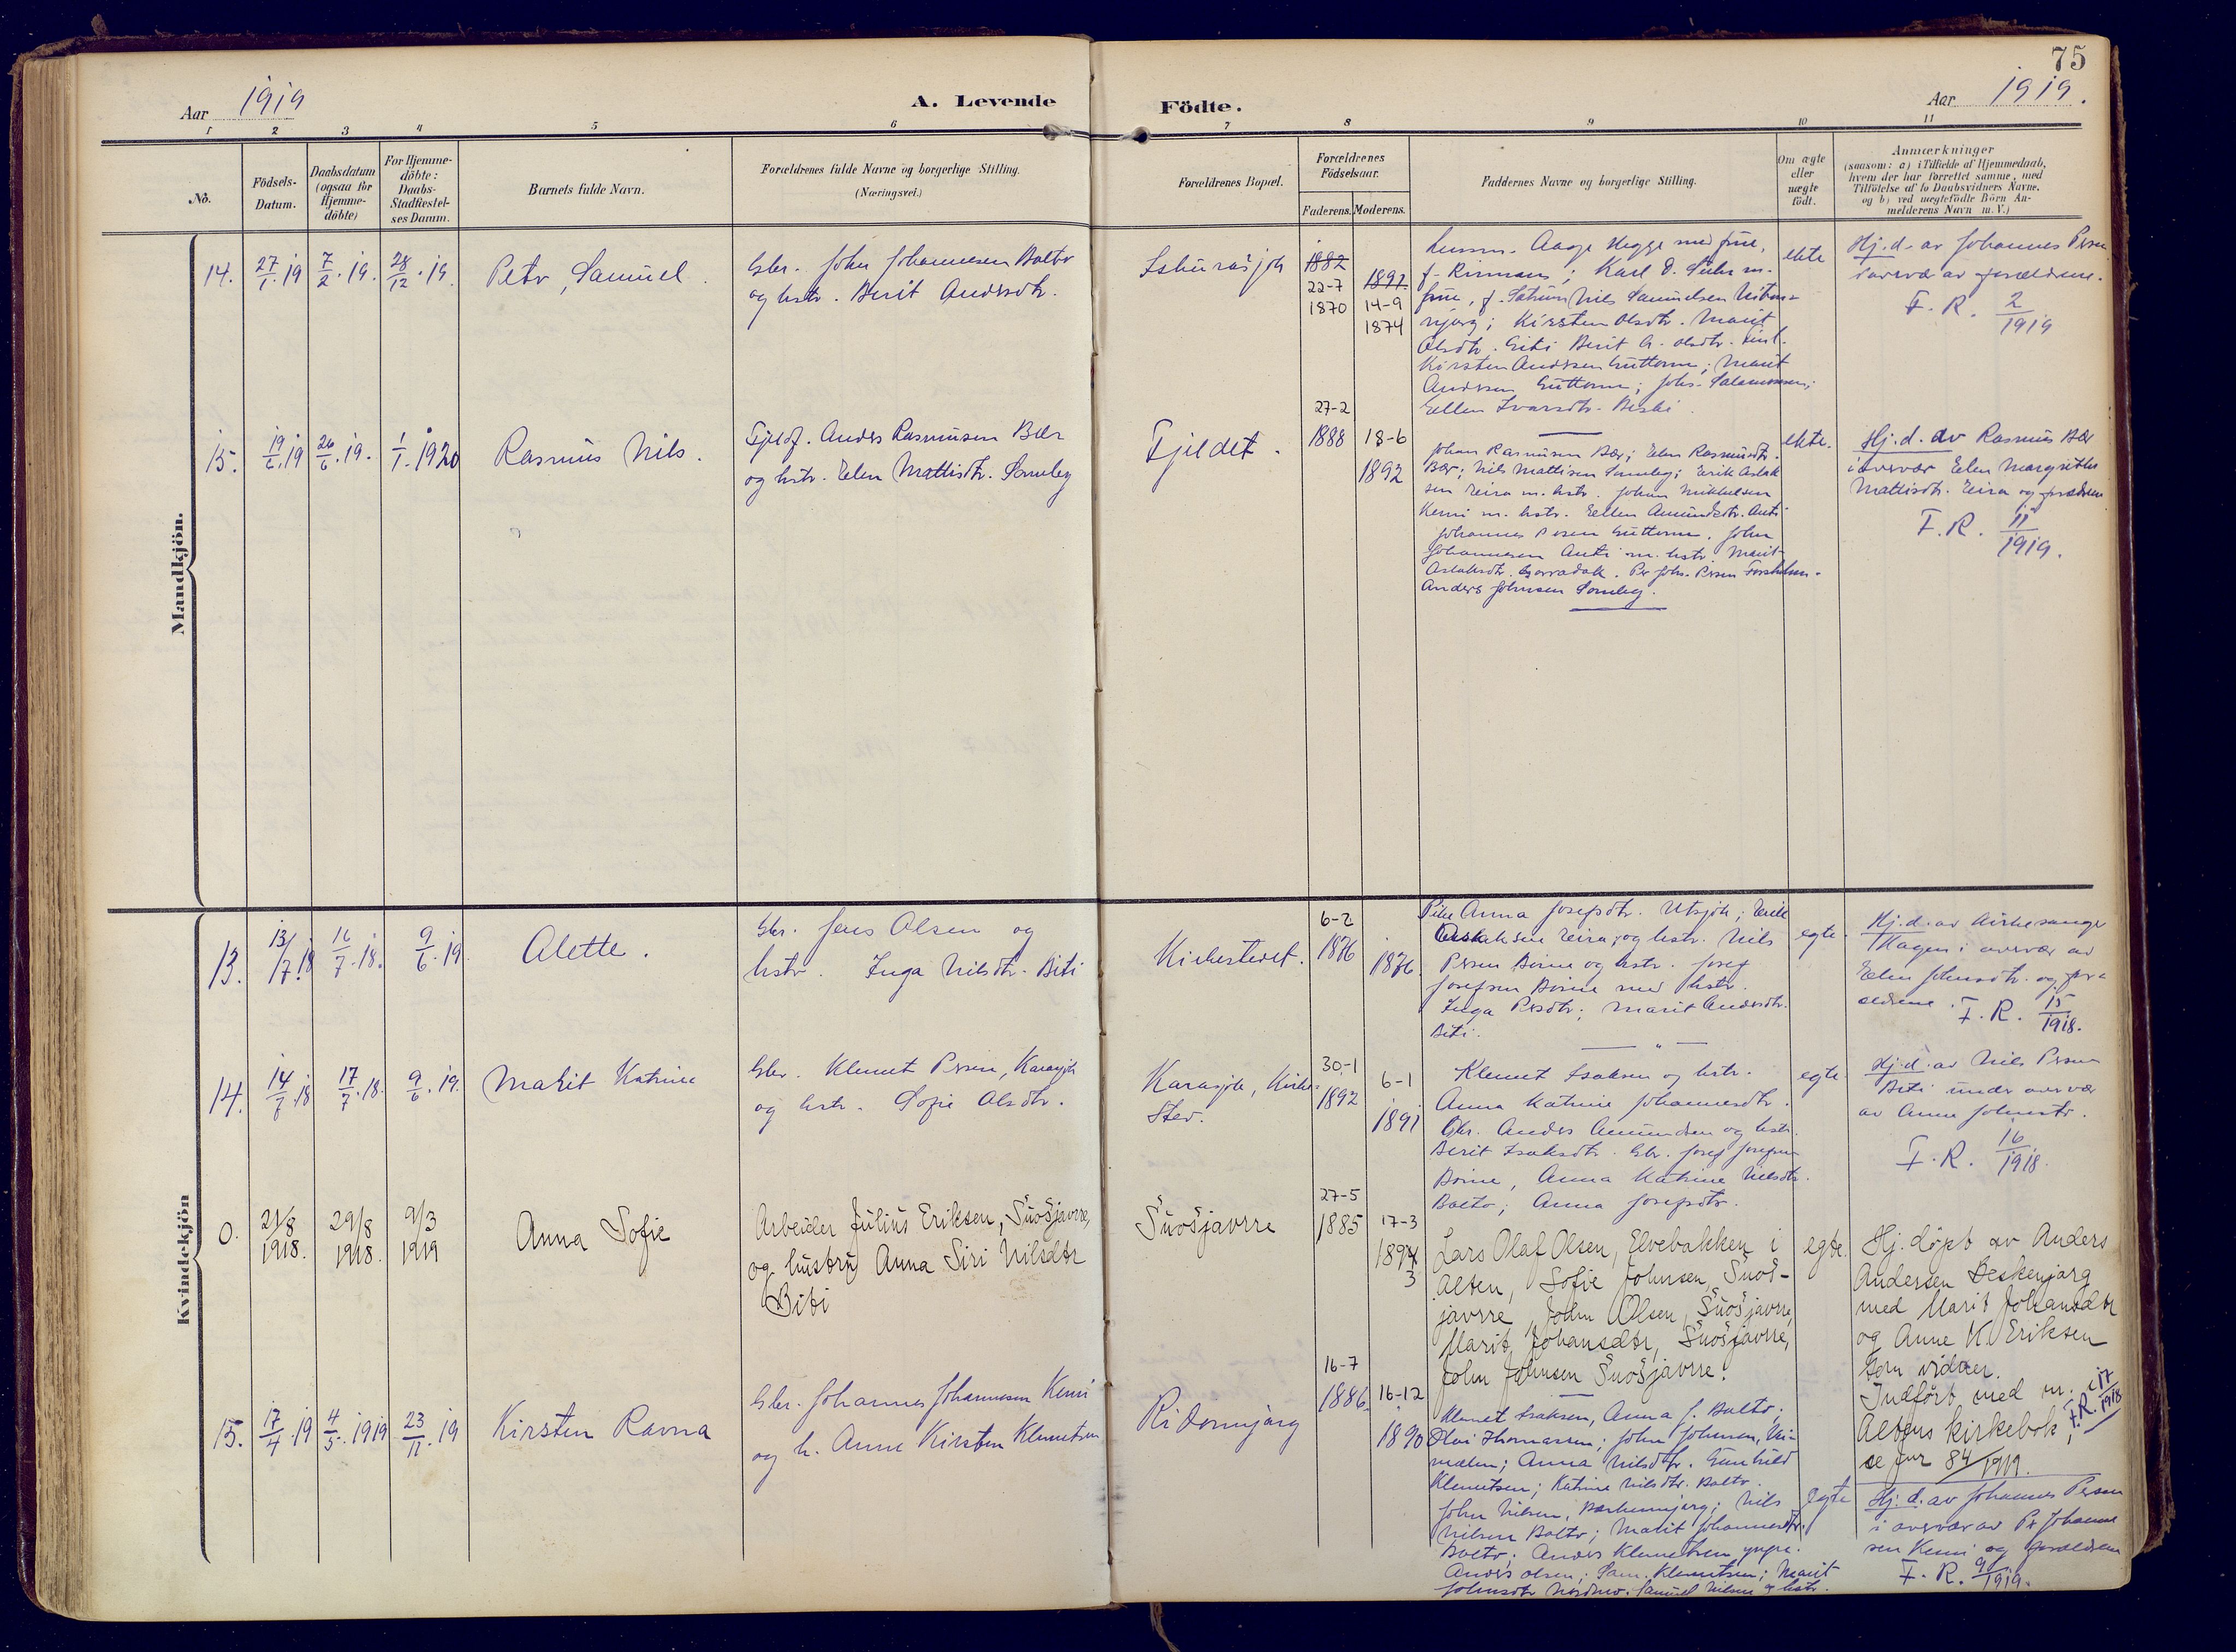 75
Aar 1919
A. Levende
Födte.
Aar 1919.
1 2 3 4 5 6 7 8 9 10 11
No.
Födsels-
Datum.
Daabsdatum
(ogsaa for
Hjemme-
döbte)
For Hjemme-
döbte:
Daabs-
Stadfæstel-
ses Datum.
Barnets fulde Navn.
Forældrenes fulde Navne og borgerlige Stilling.
(Næringsvei.)
Forældrenes Bopæl.
Forældrenes
Födselsaar.
Faderens. Moderens.
Faddernes Navne og borgerlige Stilling.
Om ægte
eller
uægte
födt.
Anmærkninger
(saasom: a) i Tilfælde af Hjemmedaab,
hvem der har forrettet samme, med
Tilföielse af to Daabsvidners Navne.
og b) ved uægtefödte Börn An-
melderens Navn m. V.)
Mandkjön.
14. 27/1.19 7/2.19. 28/12.19.
Petr, Samuel.
Gbr. John Johannesen Balto
og hstr. Berit Andersdtr.
1882
22-7
1870
1891
14-9
1874
Aage Hegge med frue,
Karl
frue, f. Nils Samuelsen
njarg; Kirsten Olsdtr. Marit
Olsdtr. Biti Berit Olsdtr.
Kirsten Andersen Guttorm; Marit
Andersen Guttorm; Johs. Salamonsen;
Ellen Ivarsdtr.
ekte
Hj.d. av Johannes Persen
i overvær av forældrene.
F. R. 2/1919
15. 19/6.19 26/6.19. 1/1.1920
Rasmus Nils.
Fjeldf. Anders Rasmusen Bær
og hstr. Elen Mattisdtr. Somby
Fjeldet.
27-2
1888
18-6
1892
Johan Rasmusen Bær; Elen Rasmusdtr.
Bær; Nils Mattisen Somby; Erik Aslak
sen Eira m. hstr. Johan Mikkelsen
Kemi m. hstr. Ellen Amundsdtr. Anti
Johannes Persen Guttorm. John
Johannesen Anti m. hstr. Marit
Aslaksdtr. Per Johs. Persen
Anders Johnsen Somby.
ekte.
Hj.d. av Rasmus Bær
i overvær Elen Margrethe
Mattisdtr. Eira og
F. R. 11/1919.
Kvindekjön
13. 13/7.18 16/7.18. 9/6.19
Alette.
Gbr. Jens Olsen og
hstr. Inga Nilsdtr. Biti
Kirkestedet.
6-2
1876
1876.
Pike Anna Josefsdtr. Utsjok; Erik
Aslaksen Eira; og hstr. Nils
Persen Boine og hstr. Josef
Josefsen Boine med hstr.
Inga Persdtr; Marit Andersdtr.
Biti.
egte.
Hj.d. av Kirkesanger
Hagen i overvær av
Elen Johnsdtr. og for-
ældrene. F. R. 15/1918.
14. 14/7.18 17/7.18. 9/6.19.
Marit Katrine
Gbr. Klemet Persen, Karasjok
og hstr. Sofie Olsdtr.
Karasjok, Kirke-
sted.
30.-1
1892
6-1
1891
Klemet Isaksen og hstr.
Anna Katrine Johannesdtr.
Gbr. Anders Amundsen og hstr.
Berit Isaksdtr. Gbr. Josef Josefsen
Boine, Anna Katrine Nilsdtr.
Balto; Anna Josefsdtr.
egte.
Hj.d. av Nils Persen
Biti under overvær
av Anna Johnsdtr.
F. R. 16/1918.
0. 21/8 1918. 29/8 1918. 9/3 1919
Anna Sofie
Arbeider Julius Eriksen, Šuošjavrre,
og hustru Anna Siri Nilsdtr
Biti
Šuošjavrre
27-5
1885
17-3
1894
3
Lars Olaf Olsen, Elvebakken i
Alten, Sofie Johnsen, Šuoš-
javrre, John Olsen, Šuošjavrre,
Marit Johansdtr, Šuošjavrre,
John Johnsen Šuošjavrre.
egte.
Hj. døpt av Anders
Andersen Beskenjarg
med Marit Johansdtr
og Anne K. Eriksen
som vidner.
Indført med nr. i
Altens kirkebok,
se jnr 84/1919.
F.R. 17/1918
15. 17/4.19 4/5.1919 23/11.19
Kirsten Ravna
Gbr. Johannes Johannesen Kemi
og h. Anne Kirsten Klemetsen
Ridonnjarg
16-7
1886.
16-12
1890
Klemet Isaksen, Anna J. Balto;
Thomassen; John Johnsen,
Anna Nilsdtr. Gunhild
Klemetsen; Katrine Nilsdtr. Balto.
John Nilsen, Nils
Nilsen Balto; Marit Johannesdtr.
Balto; Anders Klemetsen yngre.
Anders Olsen; Sam. Klemetsen; Marit
Johnsdtr Samuel Nilsen og hstr.
egte
Hj.d. av Johannes Persen
i overvær av Per Johanne
sen Kemi og forældrene
F. R. 9/1919.